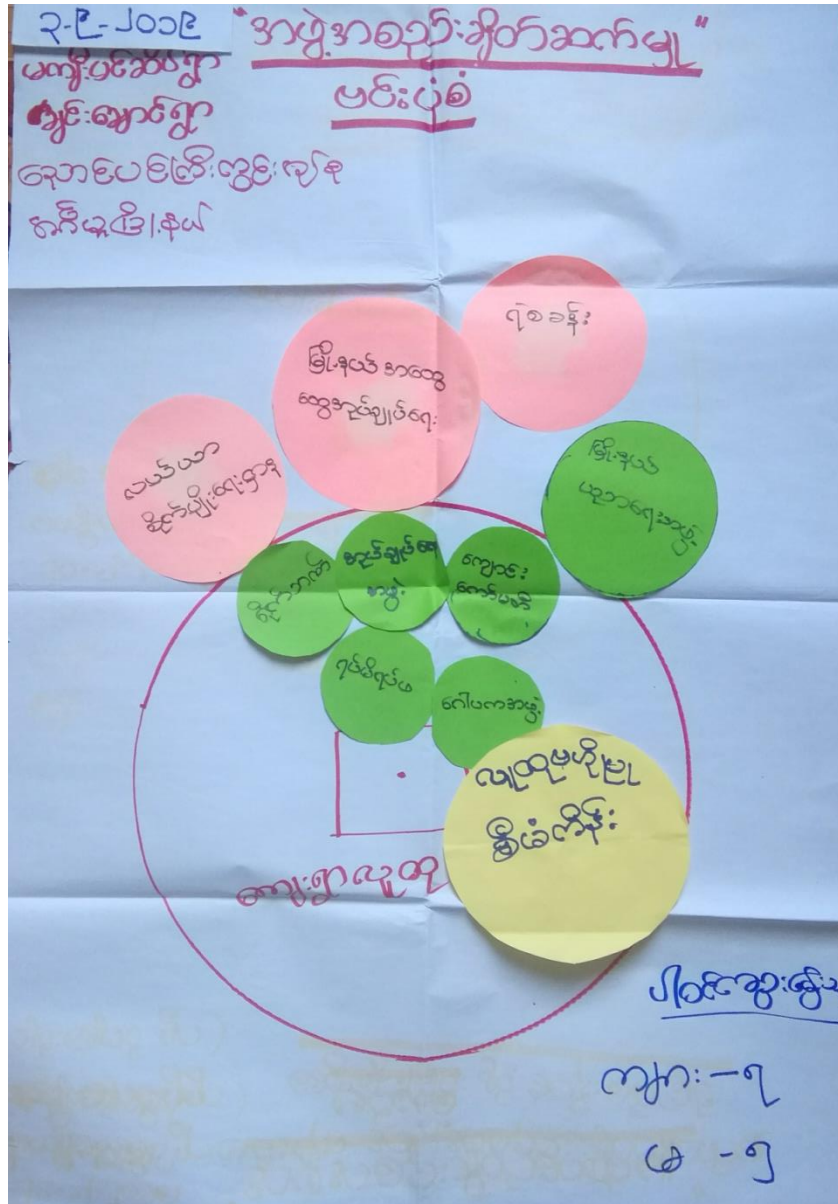 ၃-၉-၂၀၁၉
"အဖွဲ့အစည်းချိတ်ဆက်မှု"
ဗင်းပုံစံ
မကျီးပင်ဆိပ်ရွာ
ကျင်းချောင်ရွာ
ညောင်ပင်ကြီးကွင်းအုပ်စု
အင်္ဂပူမြို့နယ်
ရဲစခန်း
မြို့နယ်အထွေ
ထွေအုပ်ချုပ်ရေး
လယ်ယာ
စိုက်ပျိုးရေးဌာန
မြို့နယ်
ပညာရေးအဖွဲ့
စိုက်ဘဏ်
အုပ်ချုပ်ရေး
အဖွဲ့
ကျောင်း
ကော်မတီ
ရပ်မိရပ်ဖ
ဂေါပကအဖွဲ့
လူထုဗဟိုပြု
စီမံကိန်း
ကျေးရွာလူထု
ပါဝင်ဆွေးနွေးသ
ကျား - ၇
မ - ၅